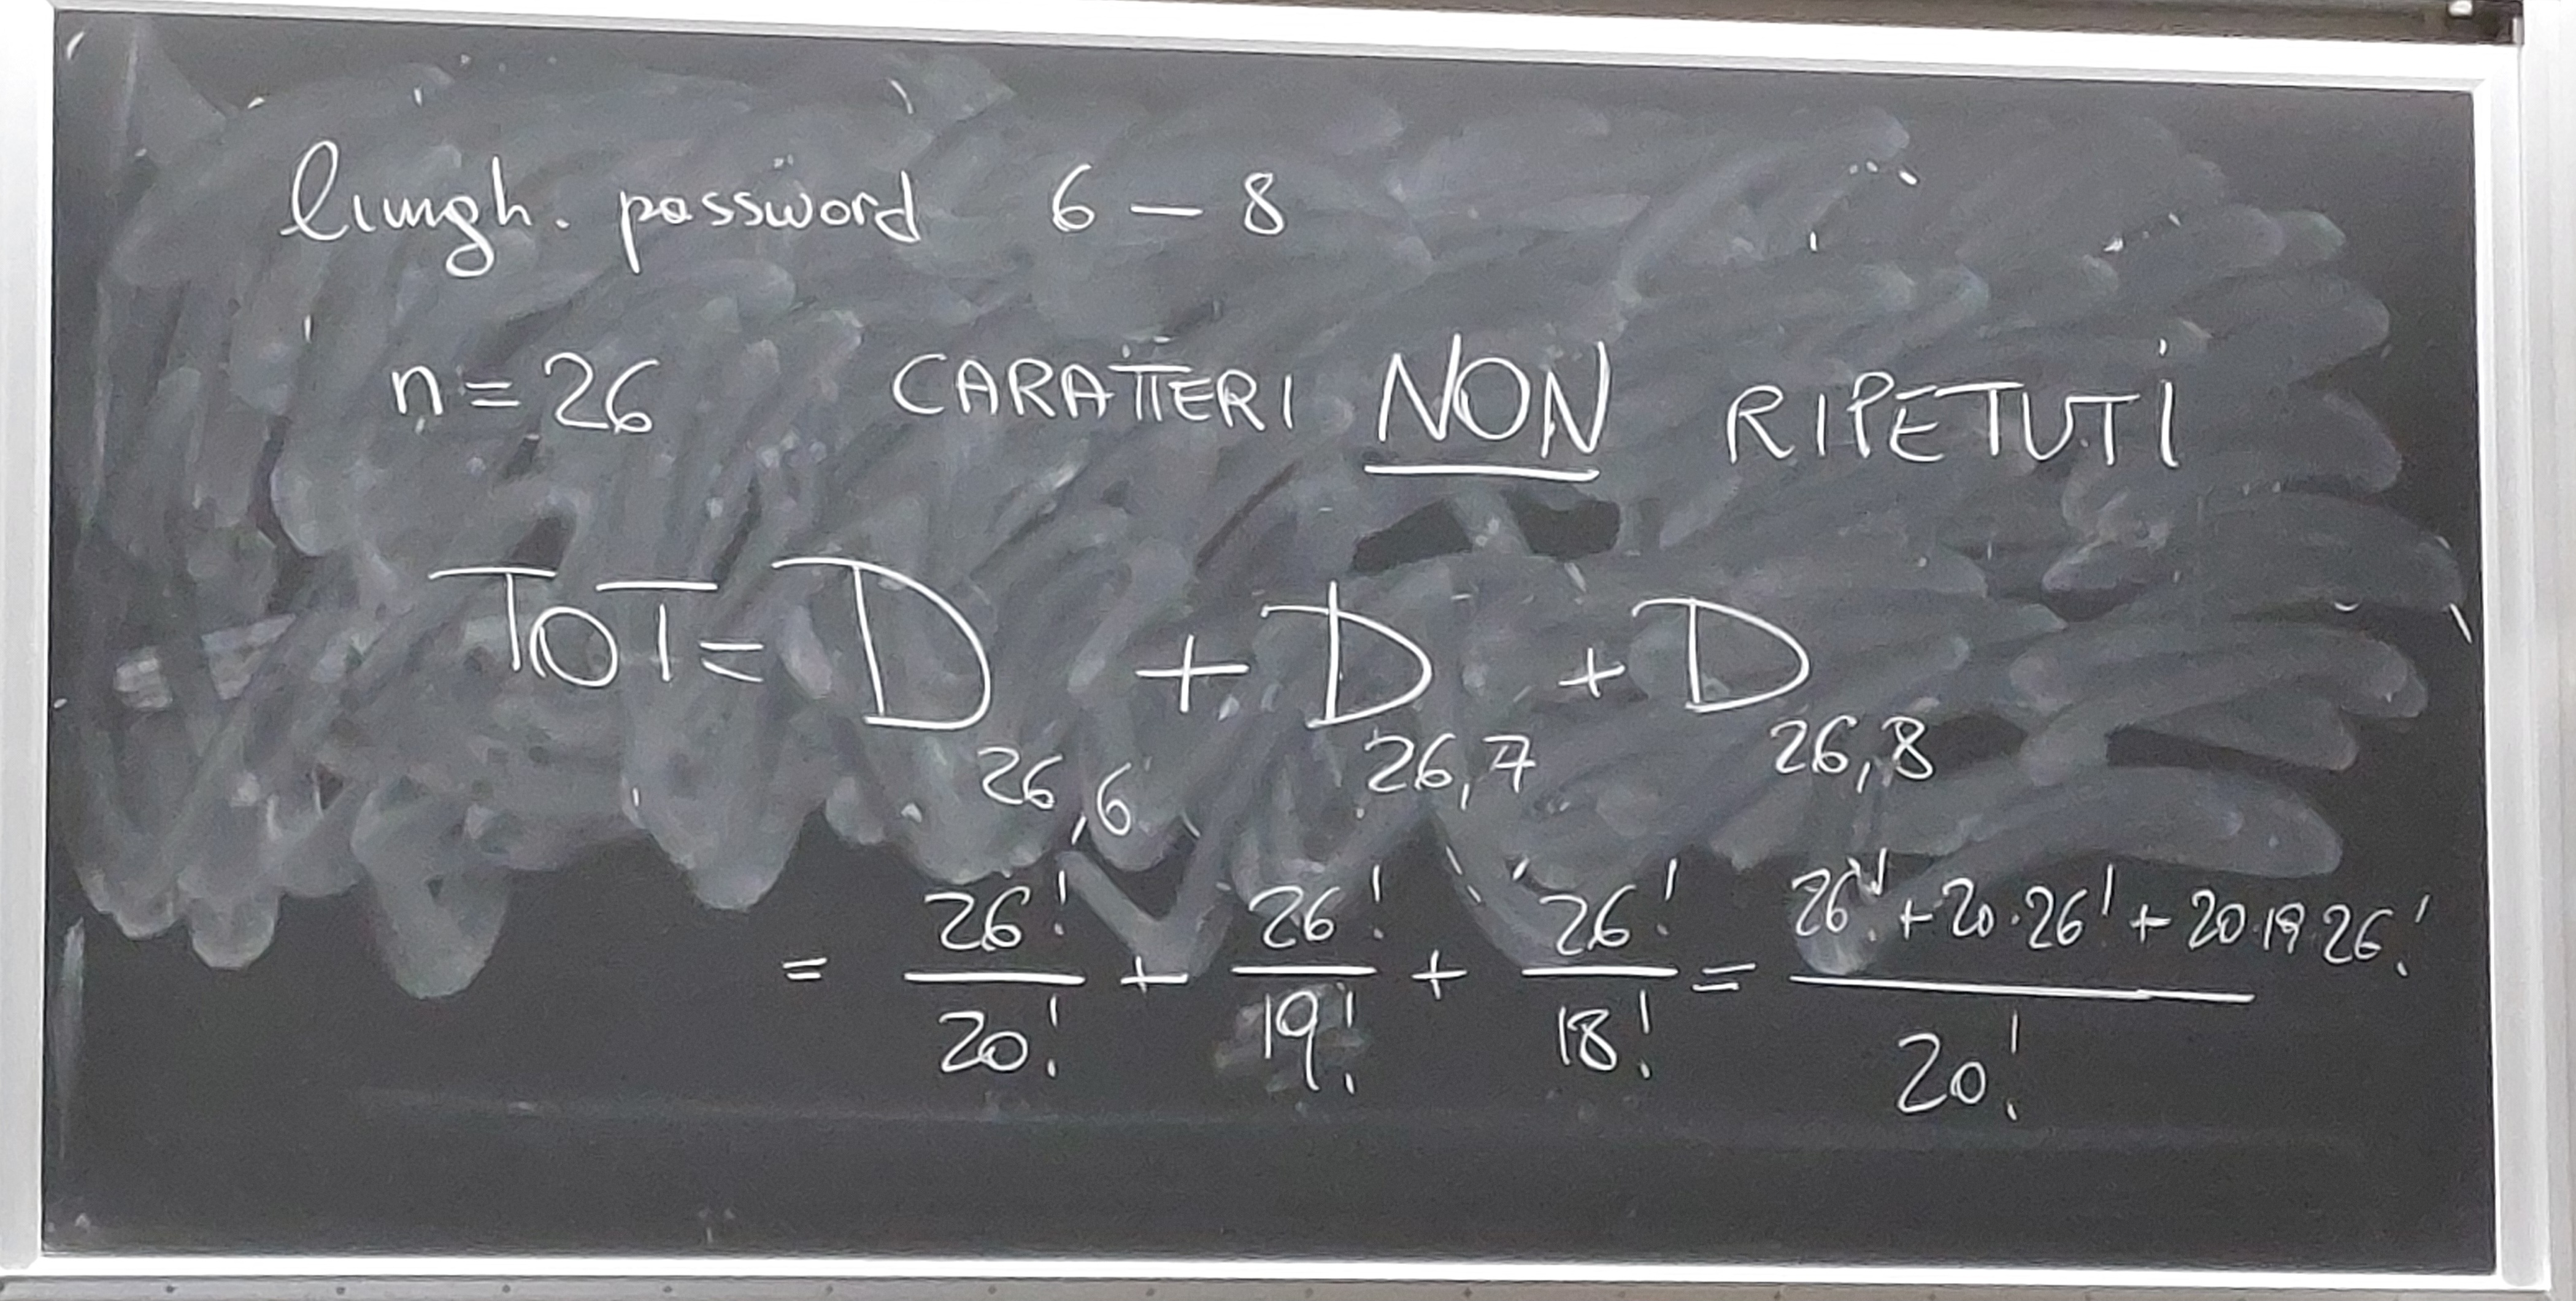 lungh. password 6 – 8
n = 26 CARATTERI NON RIPETUTI
TOT = D26,6 + D26,7 + D26,8
= 26!/20! + 26!/19! + 26!/18! = (26! + 20·26! + 20·19·26!)/20!